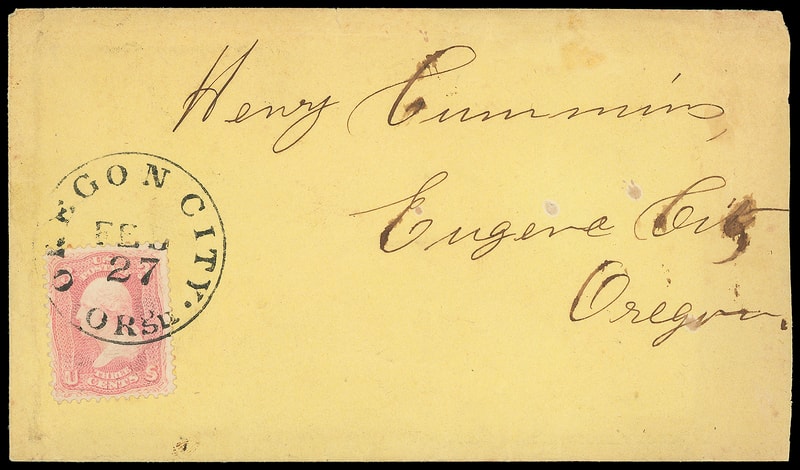 Henry Cummins,
Eugene City
Oregon.
OREGON CITY.
FEB
27
U.S.
U THREE S
CENTS